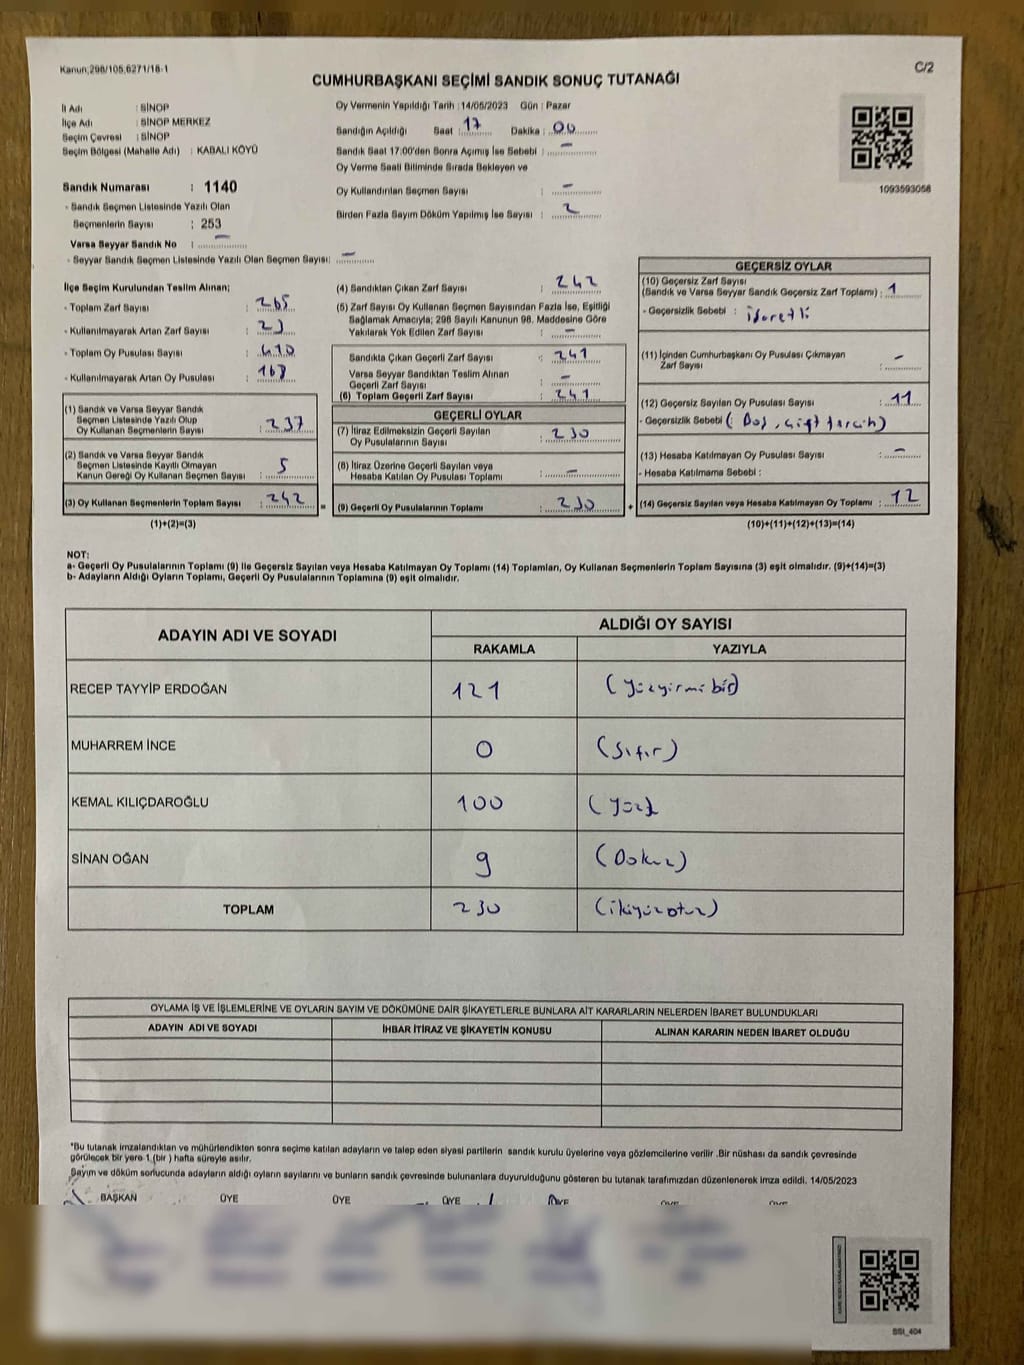 Kanun;298/105,6271/18-1
C/2
CUMHURBAŞKANI SEÇİMİ SANDIK SONUÇ TUTANAĞI
İl Adı : SİNOP
İlçe Adı : SİNOP MERKEZ
Seçim Çevresi : SİNOP
Seçim Bölgesi (Mahalle Adı) : KABALI KÖYÜ
Sandık Numarası : 1140
- Sandık Seçmen Listesinde Yazılı Olan
Seçmenlerin Sayısı : 253
Varsa Seyyar Sandık No : -
- Seyyar Sandık Seçmen Listesinde Yazılı Olan Seçmen Sayısı: -
Oy Vermenin Yapıldığı Tarih : 14/05/2023 Gün : Pazar
Sandığın Açıldığı Saat : 17 Dakika : 00
Sandık Saat 17:00'den Sonra Açımış İse Sebebi : -
Oy Verme Saati Bitiminde Sırada Bekleyen ve
Oy Kullandırılan Seçmen Sayısı : -
Birden Fazla Sayım Döküm Yapılmış İse Sayısı : 2
1093593058
İlçe Seçim Kurulundan Teslim Alınan;
- Toplam Zarf Sayısı : 265
- Kullanılmayarak Artan Zarf Sayısı : 23
- Toplam Oy Pusulası Sayısı : 410
- Kullanılmayarak Artan Oy Pusulası : 168
(1) Sandık ve Varsa Seyyar Sandık
Seçmen Listesinde Yazılı Olup
Oy Kullanan Seçmenlerin Sayısı : 237
(2) Sandık ve Varsa Seyyar Sandık
Seçmen Listesinde Kayıtlı Olmayan
Kanun Gereği Oy Kullanan Seçmen Sayısı : 5
(3) Oy Kullanan Seçmenlerin Toplam Sayısı : 242
(1)+(2)=(3)
(4) Sandıktan Çıkan Zarf Sayısı : 242
(5) Zarf Sayısı Oy Kullanan Seçmen Sayısından Fazla İse, Eşitliği
Sağlamak Amacıyla; 298 Sayılı Kanunun 98. Maddesine Göre
Yakılarak Yok Edilen Zarf Sayısı : -
Sandıkta Çıkan Geçerli Zarf Sayısı : 241
Varsa Seyyar Sandıktan Teslim Alınan
Geçerli Zarf Sayısı : -
(6) Toplam Geçerli Zarf Sayısı : 241
GEÇERLİ OYLAR
(7) İtiraz Edilmeksizin Geçerli Sayılan
Oy Pusulalarının Sayısı : 230
(8) İtiraz Üzerine Geçerli Sayılan veya
Hesaba Katılan Oy Pusulası Toplamı : -
= (9) Geçerli Oy Pusulalarının Toplamı : 230
GEÇERSİZ OYLAR
(10) Geçersiz Zarf Sayısı
(Sandık ve Varsa Seyyar Sandık Geçersiz Zarf Toplamı) : 1
- Geçersizlik Sebebi : işaretli
(11) İçinden Cumhurbaşkanı Oy Pusulası Çıkmayan
Zarf Sayısı : -
(12) Geçersiz Sayılan Oy Pusulası Sayısı : 11
- Geçersizlik Sebebi : (Boş, çift tercih)
(13) Hesaba Katılmayan Oy Pusulası Sayısı : -
- Hesaba Katılmama Sebebi :
+ (14) Geçersiz Sayılan veya Hesaba Katılmayan Oy Toplamı : 12
(10)+(11)+(12)+(13)=(14)
NOT:
a- Geçerli Oy Pusulalarının Toplamı (9) ile Geçersiz Sayılan veya Hesaba Katılmayan Oy Toplamı (14) Toplamları, Oy Kullanan Seçmenlerin Toplam Sayısına (3) eşit olmalıdır. (9)+(14)=(3)
b- Adayların Aldığı Oyların Toplamı, Geçerli Oy Pusulalarının Toplamına (9) eşit olmalıdır.
ADAYIN ADI VE SOYADI
ALDIĞI OY SAYISI
RAKAMLA YAZIYLA
RECEP TAYYİP ERDOĞAN 121 (yüzyirmibir)
MUHARREM İNCE 0 (Sıfır)
KEMAL KILIÇDAROĞLU 100 (yüz)
SİNAN OĞAN 9 (Dokuz)
TOPLAM 230 (ikiyüzotuz)
OYLAMA İŞ VE İŞLEMLERİNE VE OYLARIN SAYIM VE DÖKÜMÜNE DAİR ŞİKAYETLERLE BUNLARA AİT KARARLARIN NELERDEN İBARET BULUNDUKLARI
ADAYIN ADI VE SOYADI İHBAR İTİRAZ VE ŞİKAYETİN KONUSU ALINAN KARARIN NEDEN İBARET OLDUĞU
*Bu tutanak imzalandıktan ve mühürlendikten sonra seçime katılan adayların ve talep eden siyasi partilerin sandık kurulu üyelerine veya gözlemcilerine verilir .Bir nüshası da sandık çevresinde
görülecek bir yere 1 (bir ) hafta süreyle asılır.
Sayım ve döküm sonucunda adayların aldığı oyların sayılarını ve bunların sandık çevresinde bulunanlara duyurulduğunu gösteren bu tutanak tarafımızdan düzenlenerek imza edildi. 14/05/2023
BAŞKAN ÜYE ÜYE ÜYE ÜYE
SSI_404